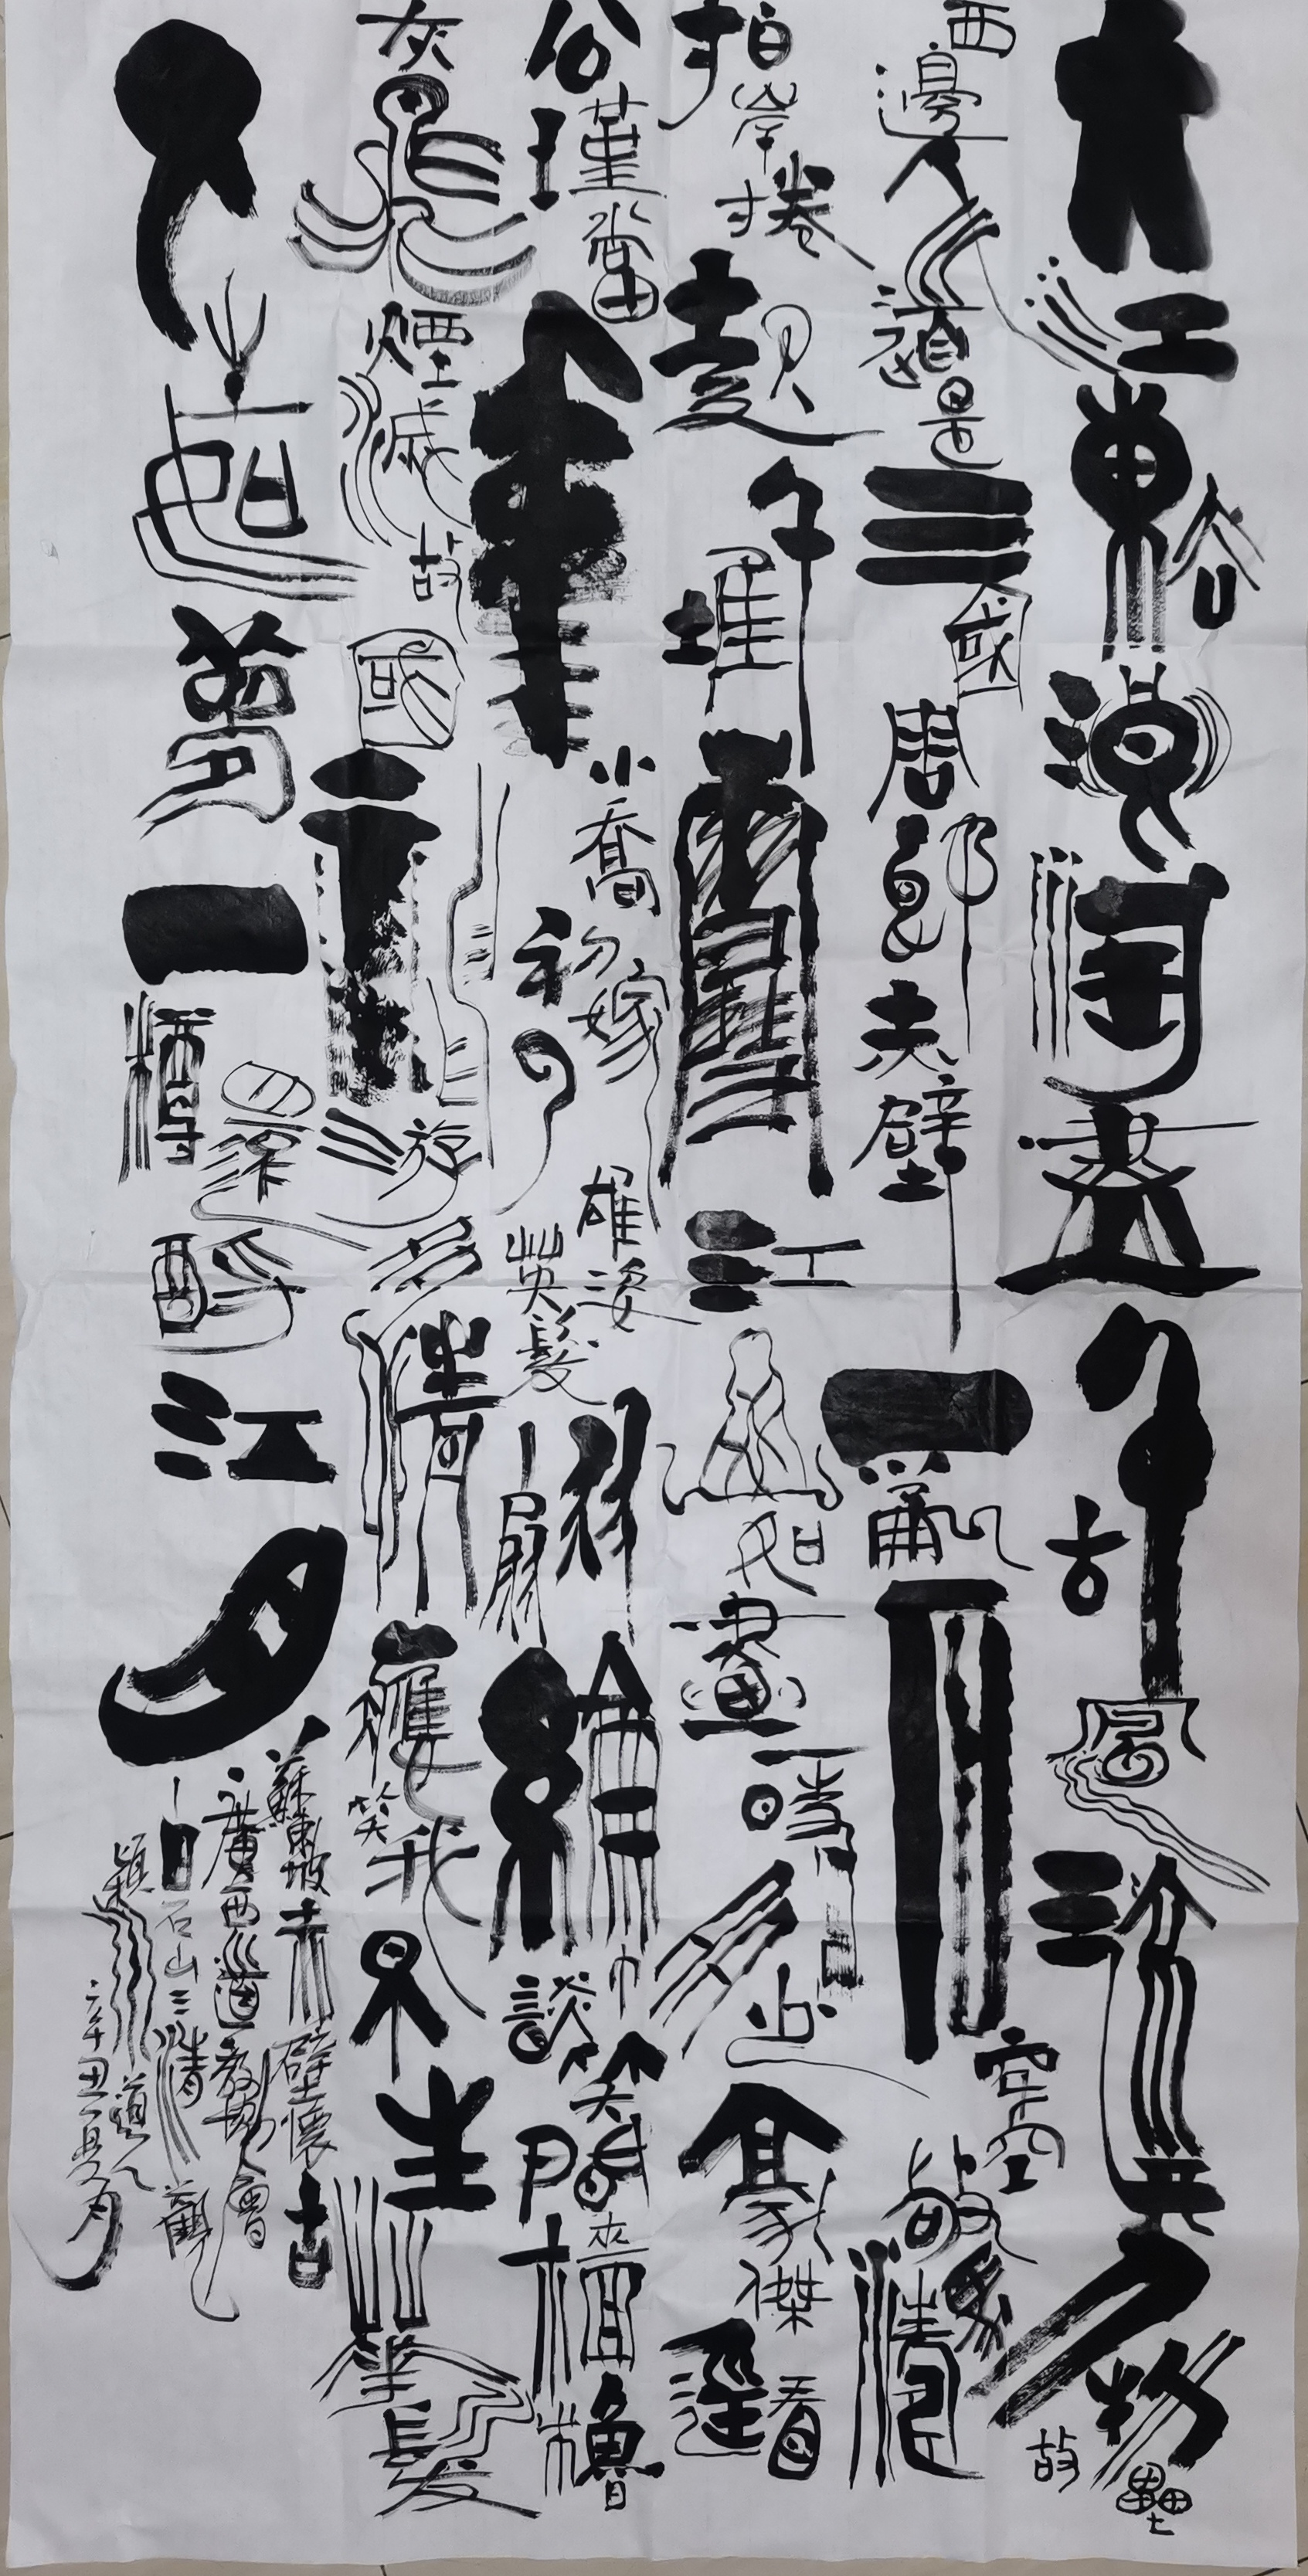 大江東去浪淘盡千古風流人物故壘
西邊人道是三國周郎赤壁亂石穿空驚濤
拍岸捲起千堆雪江山如畫一時多少豪傑遙看
公瑾當年小喬初嫁了雄姿英髮羽扇綸巾談笑間檣櫓
灰飛煙滅故國神遊多情應笑我早生華髮
人生如夢一樽還酹江月
蘇東坡赤壁懷古
廣西道教協會
白石山三清觀
道人
辛丑夏月